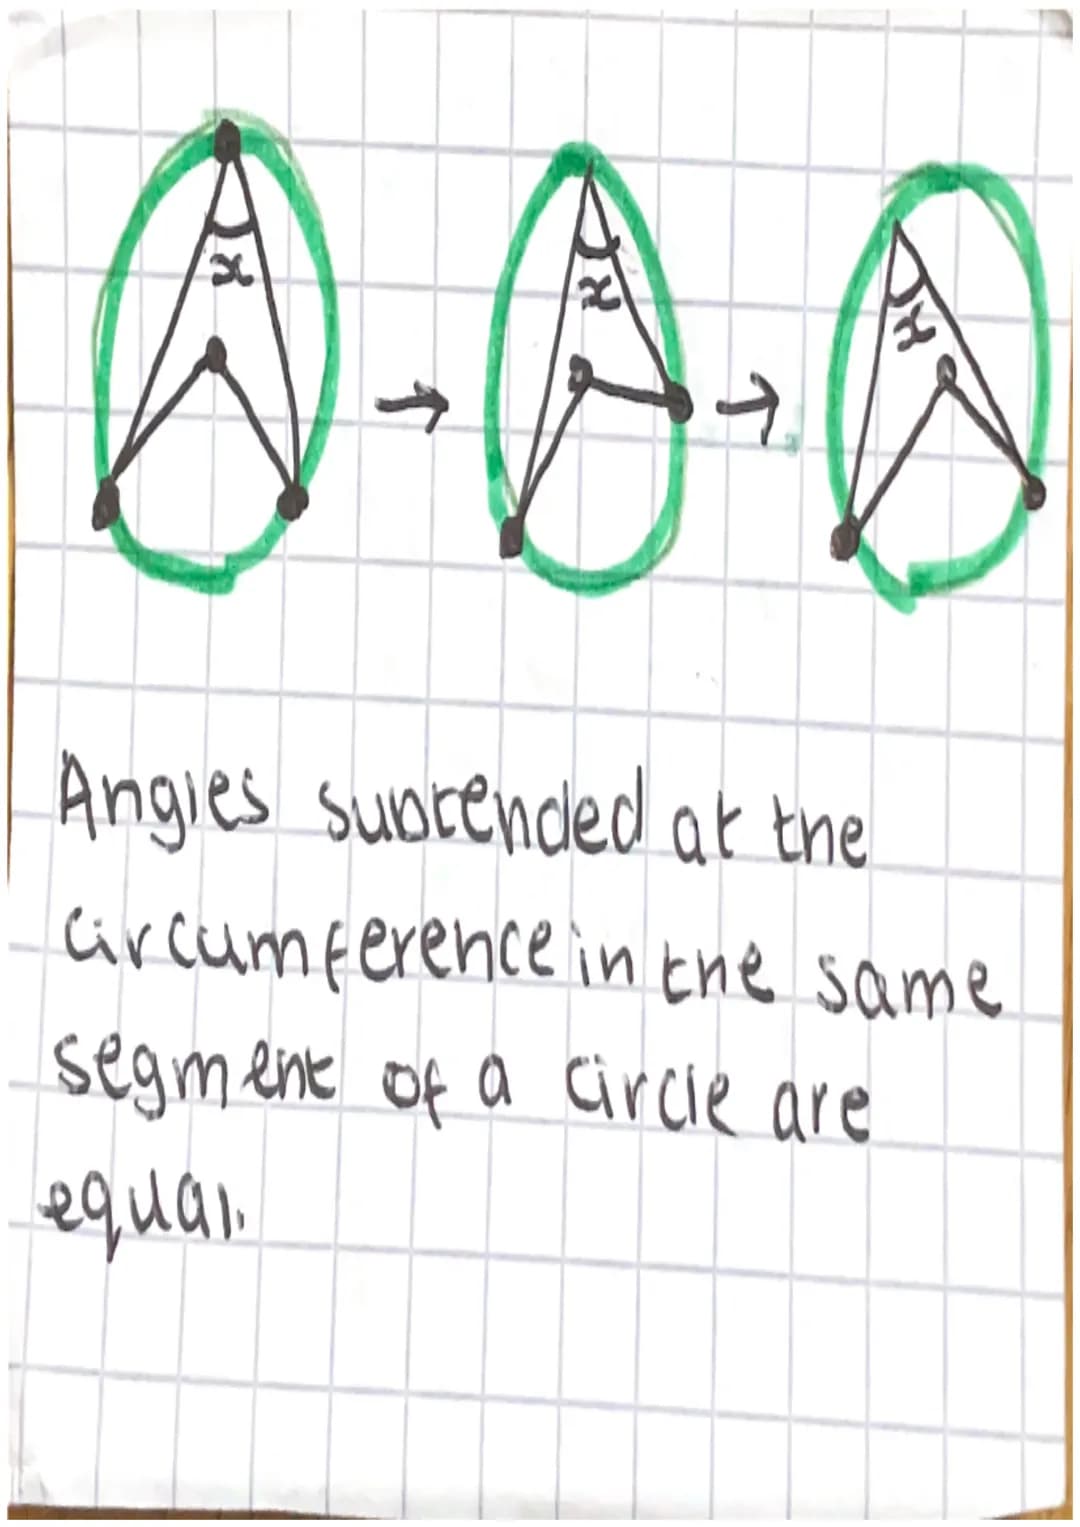 x x x
Angles subtended at the
circumference in the same
segment of a circle are
equal.